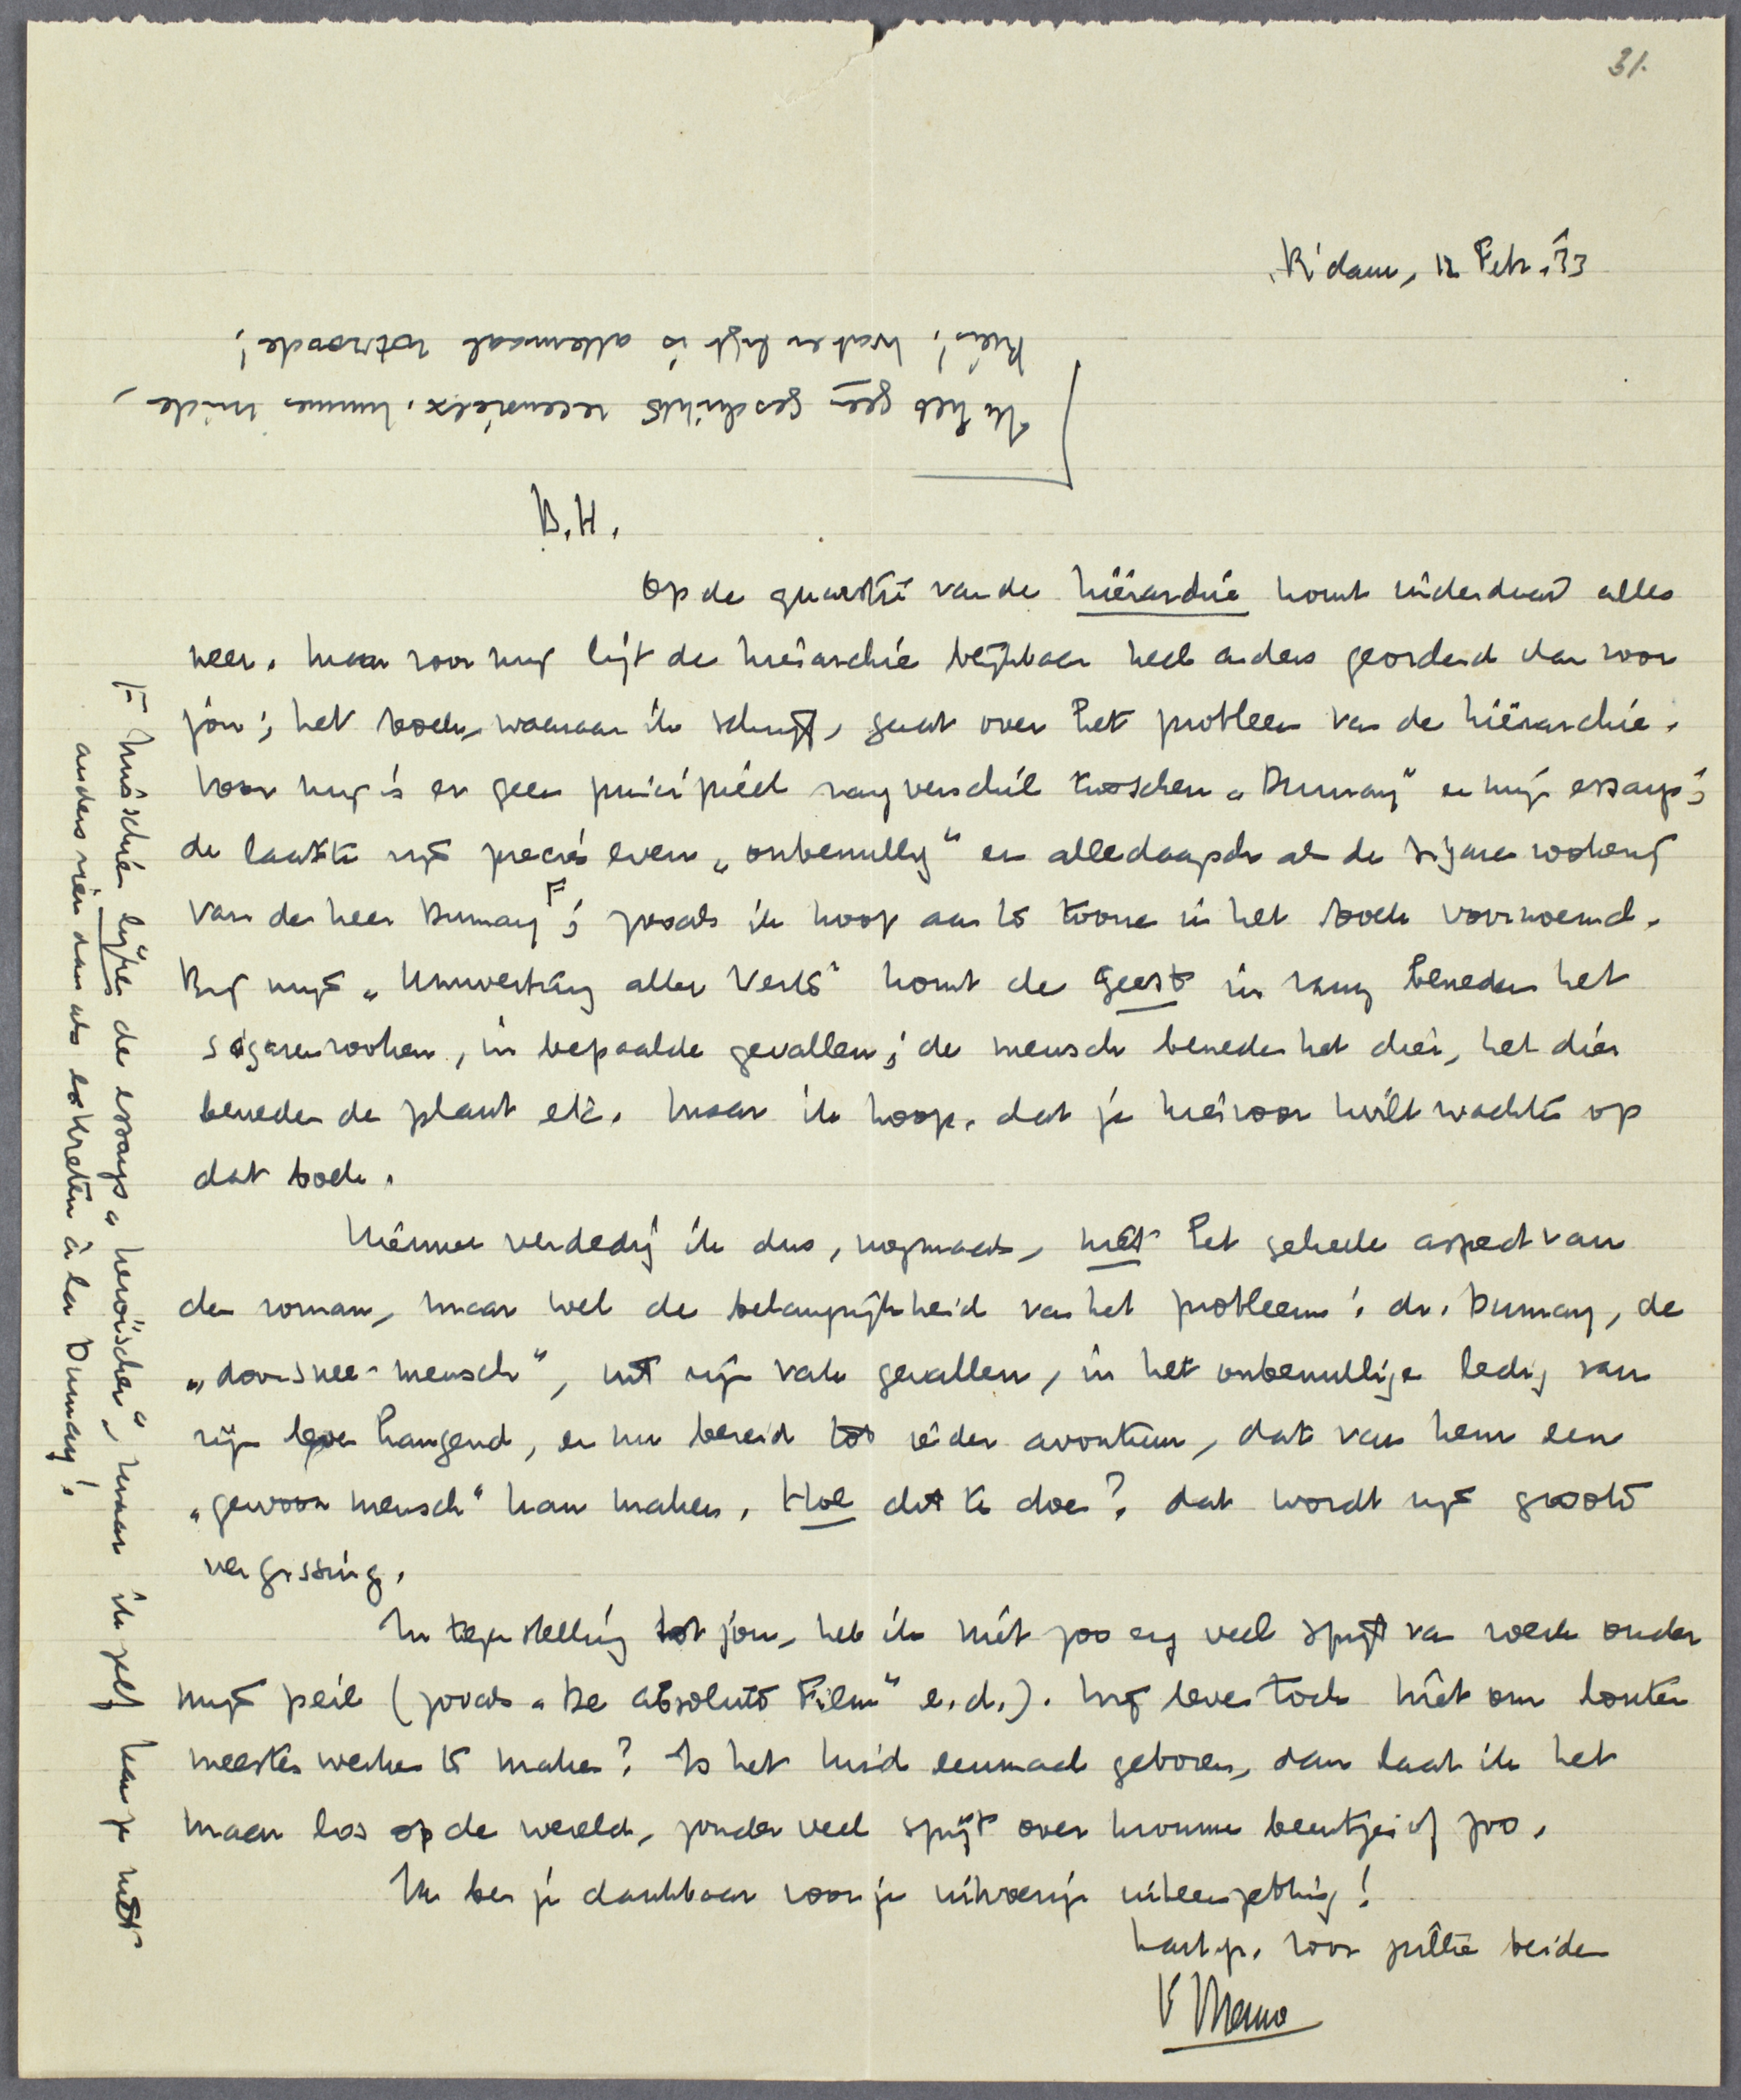 31.
R'dam, 12 Febr. '33
Ik heb geen geschikte recensieëx. hummes inde,
Kees! Wat er ligt is allemaal rotzoode!
B.H.
Op de quaestie van de hiërarchie komt inderdaad alles
neer. Maar voor mij ligt de hiërarchie blijkbaar heel anders geordend dan voor
jou; het boek, waaraan ik schrijf, gaat over het probleem van de hiërarchie.
Voor mij is er geen principieel rangverschil tusschen „Dumay" en mijn essays;
de laatste zijn precies even „onbenullig" en alledaagsch als de sigarenrookerij
van den heer Dumay F; zooals ik hoop aan te toonen in het boek voornoemd.
Bij mijn „Umwertung aller Werte" komt de geest in rang beneden het
sigarenrooken, in bepaalde gevallen; de mensch beneden het dier, het dier
beneden de plant etc. Maar ik hoop, dat je hiervoor wilt wachten op
dat boek.
Hiermee verdedig ik dus, nogmaals, niet het geheele aspect van
den roman, maar wel de belangrijkheid van het probleem: dr. Dumay, de
„doorsnee-mensch", uit zijn vak gevallen, in het onbenullige ledig van
zijn leven hangend, en nu bereid tot ieder avontuur, dat van hem een
„gewoon mensch" kan maken. Hoe dit te doen? dat wordt zijn groote
vergissing.
In tegenstelling tot jou, heb ik niet zoo erg veel spijt van werk onder
mijn peil (zooals „De Absolute Film" e.d.). Wij leven toch niet om louter
meesterwerken te maken? Is het kind eenmaal geboren, dan laat ik het
maar los op de wereld, zonder veel spijt over kromme beentjes of zoo.
Ik ben je dankbaar voor je uitvoerige uiteenzetting!
hart. gr. voor jullie beiden
t. Menno
F Misschien lijken de essays „heroischer", maar ik zelf kan ze niet
anders zien dan als sekreten à la Dumay!